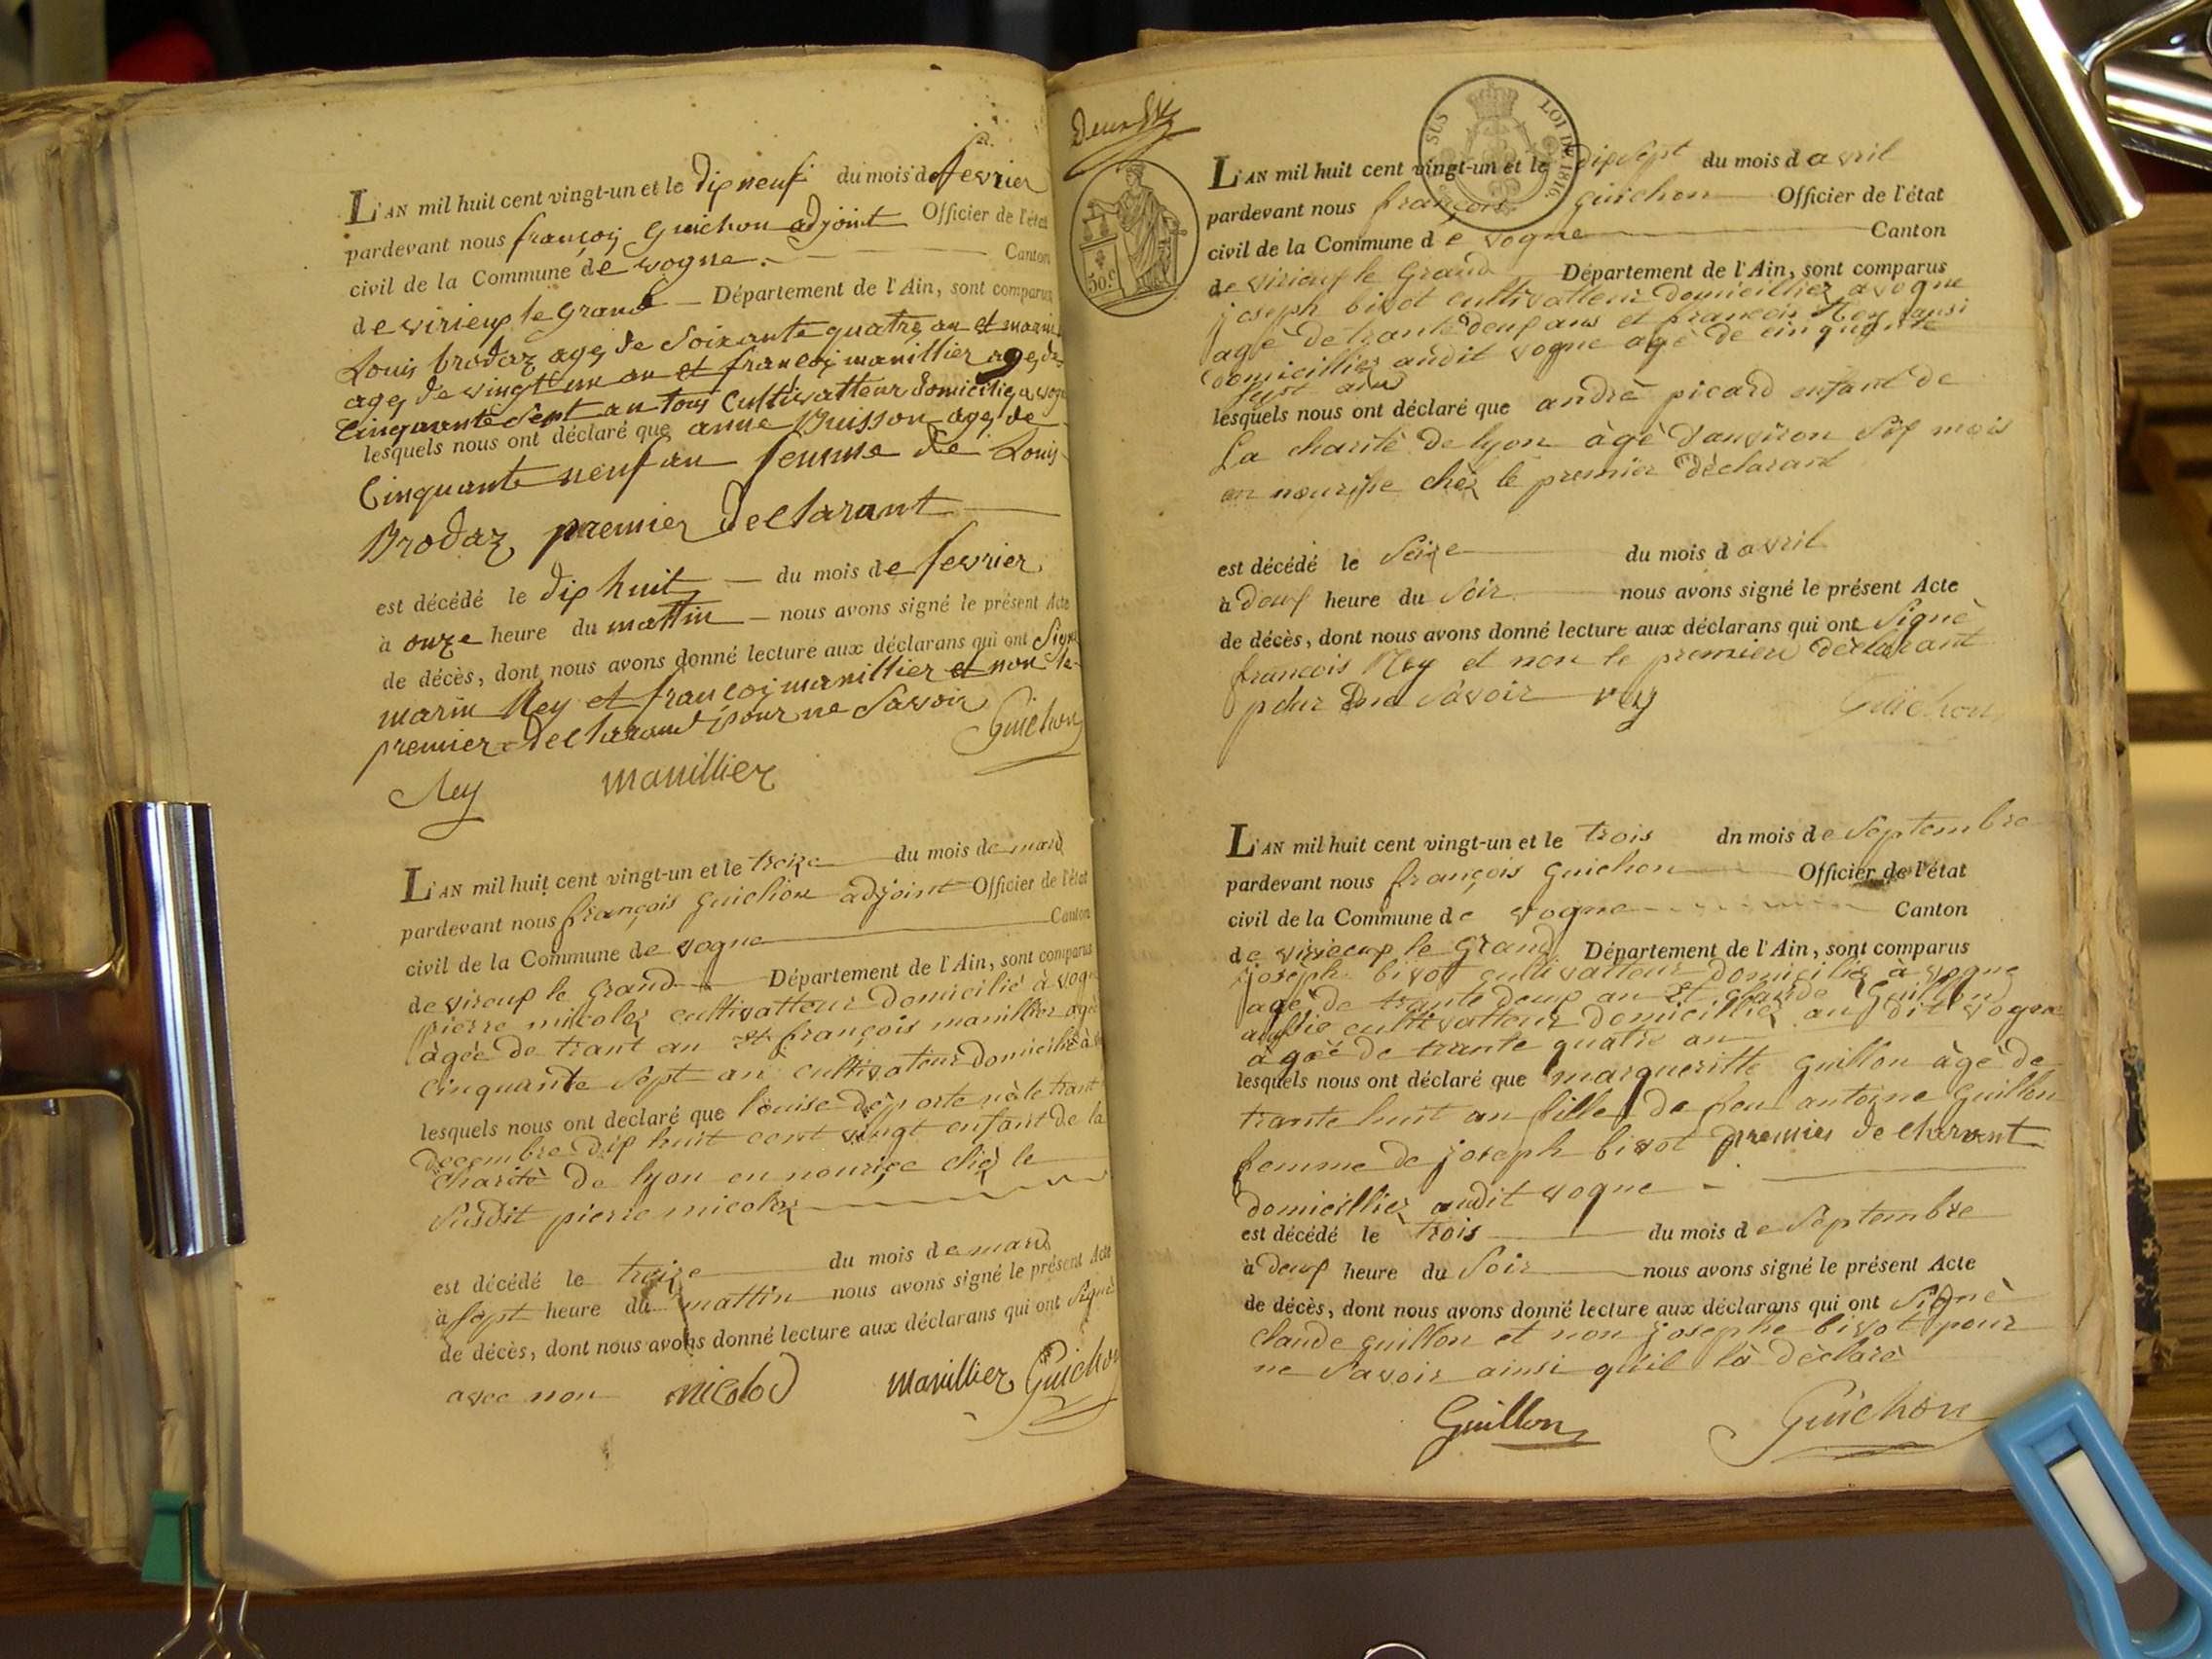 L'AN mil huit cent vingt-un et le dix neuf du mois de fevrier
pardevant nous françois Guichon adjoint Officier de l'état
civil de la Commune de vogne. Canton
de virieux le grand Département de l'Ain, sont comparus
Louis brodaz agé de Soixante quatre an et marin
agé de vingt un an et françois manillier agé de
Cinquante Sept an tous Cultivatteur domicilié a vogne
lesquels nous ont déclaré que anne Buisson agé de
Cinquante neuf an femme de Louis
Brodaz premier declarant
est décédé le dix huit du mois de fevrier
à onze heure du mattin nous avons signé le présent Acte
de décès, dont nous avons donné lecture aux déclarans qui ont Signé
marin Rey et françois manillier et non le
premier declarant pour ne Savoir
Guichon
Rey manillier
L'AN mil huit cent vingt-un et le treize du mois de mars
pardevant nous françois Guichon adjoint Officier de l'état
civil de la Commune de vogne Canton
de vireux le Grand Département de l'Ain, sont comparus
pierre micolod cultivatteur domicilié à vogne
àgée de trant an et françois manillier agé
Cinquante Sept an cultivateur domicilié à
lesquels nous ont declaré que louise déporte nà le trant
decembre dix huit cent vingt enfant de la
charité de lyon en nourice chéz le
Susdit pierre micolod
est décédé le treize du mois de mars
à sept heure du mattin nous avons signé le présent Acte
de décès, dont nous avons donné lecture aux déclarans qui ont Signé
avec nou micolod manillier Guichon
SUS LOI DE 1816
50 c
L'AN mil huit cent vingt-un et le dix sept du mois d avril
pardevant nous françois guichon Officier de l'état
civil de la Commune d e vogne Canton
de virieux le Grand Département de l'Ain, sont comparus
joseph bivot cultivatteur domicillier a vogne
agé de trante deux ans et francois Rey aussi
domicillier audit vogne agé de cinquante
sept ans
lesquels nous ont déclaré que andrè picard enfant de
La charité de lyon àgè d'anviron six mois
en nourisse chéz le premier déclarant
est décédé le Seize du mois d avril
à deux heure du Soir nous avons signé le présent Acte
de décès, dont nous avons donné lecture aux déclarans qui ont Signé
francois Rey et non le premier déclarant
pour ne savoir rey Guichon
L'AN mil huit cent vingt-un et le trois dn mois de Septembre
pardevant nous françois Guichon Officier de l'état
civil de la Commune de vogne Canton
de virieux le Grand Département de l'Ain, sont comparus
joseph bivot cultivatteur domicilié à vogne
agé de trante deux an et claude Guillon
aussie cultivatteur domicillier au dit vogne
àgéé de trante quatre an
lesquels nous ont déclaré que margueritte Guillon àgé de
trante huit an fille de feu antoine Guillon
femme de joseph bivot premier declarent
domicillier audit vogne
est décédé le trois du mois d e Septembre
à deux heure du Soir nous avons signé le présent Acte
de décès, dont nous avons donné lecture aux déclarans qui ont Signé
claude guillon et non josephe bivot pour
ne Savoir ainsi quil là déclaré
Guillon Guichon